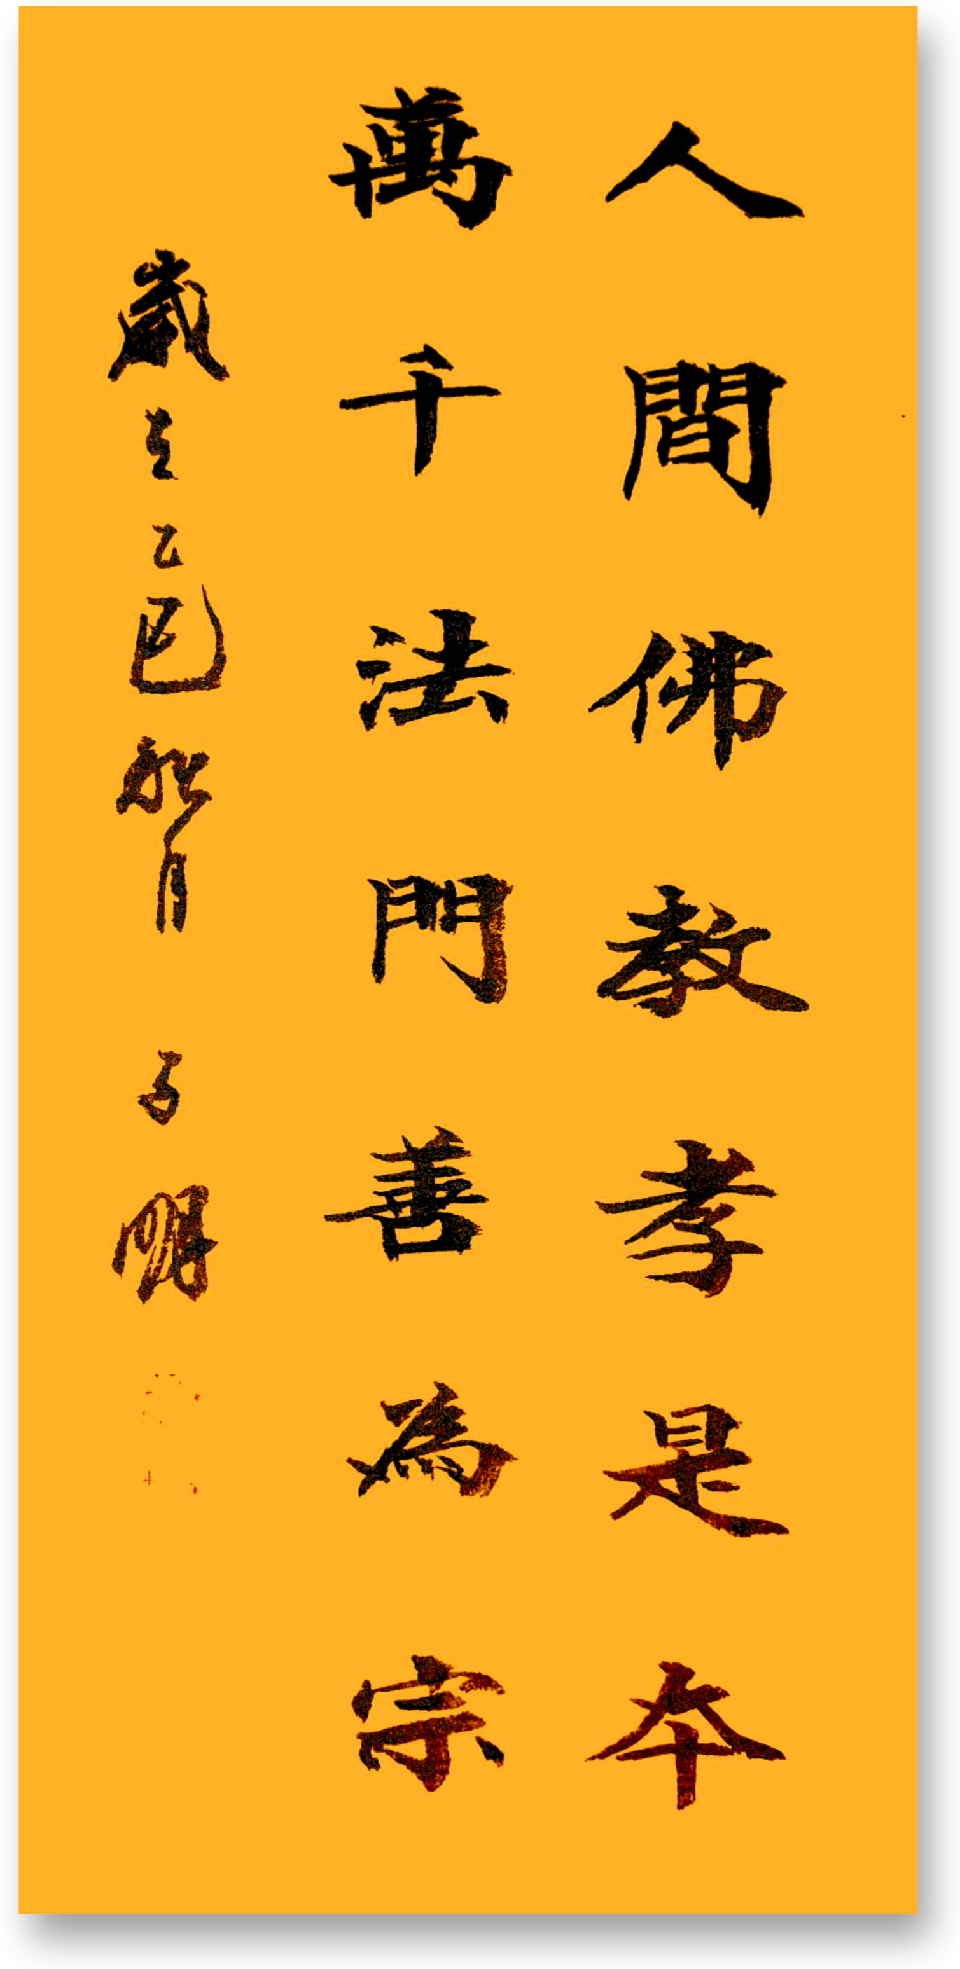 人間佛教孝是本
萬千法門善為宗
歲在乙巳 月 子明